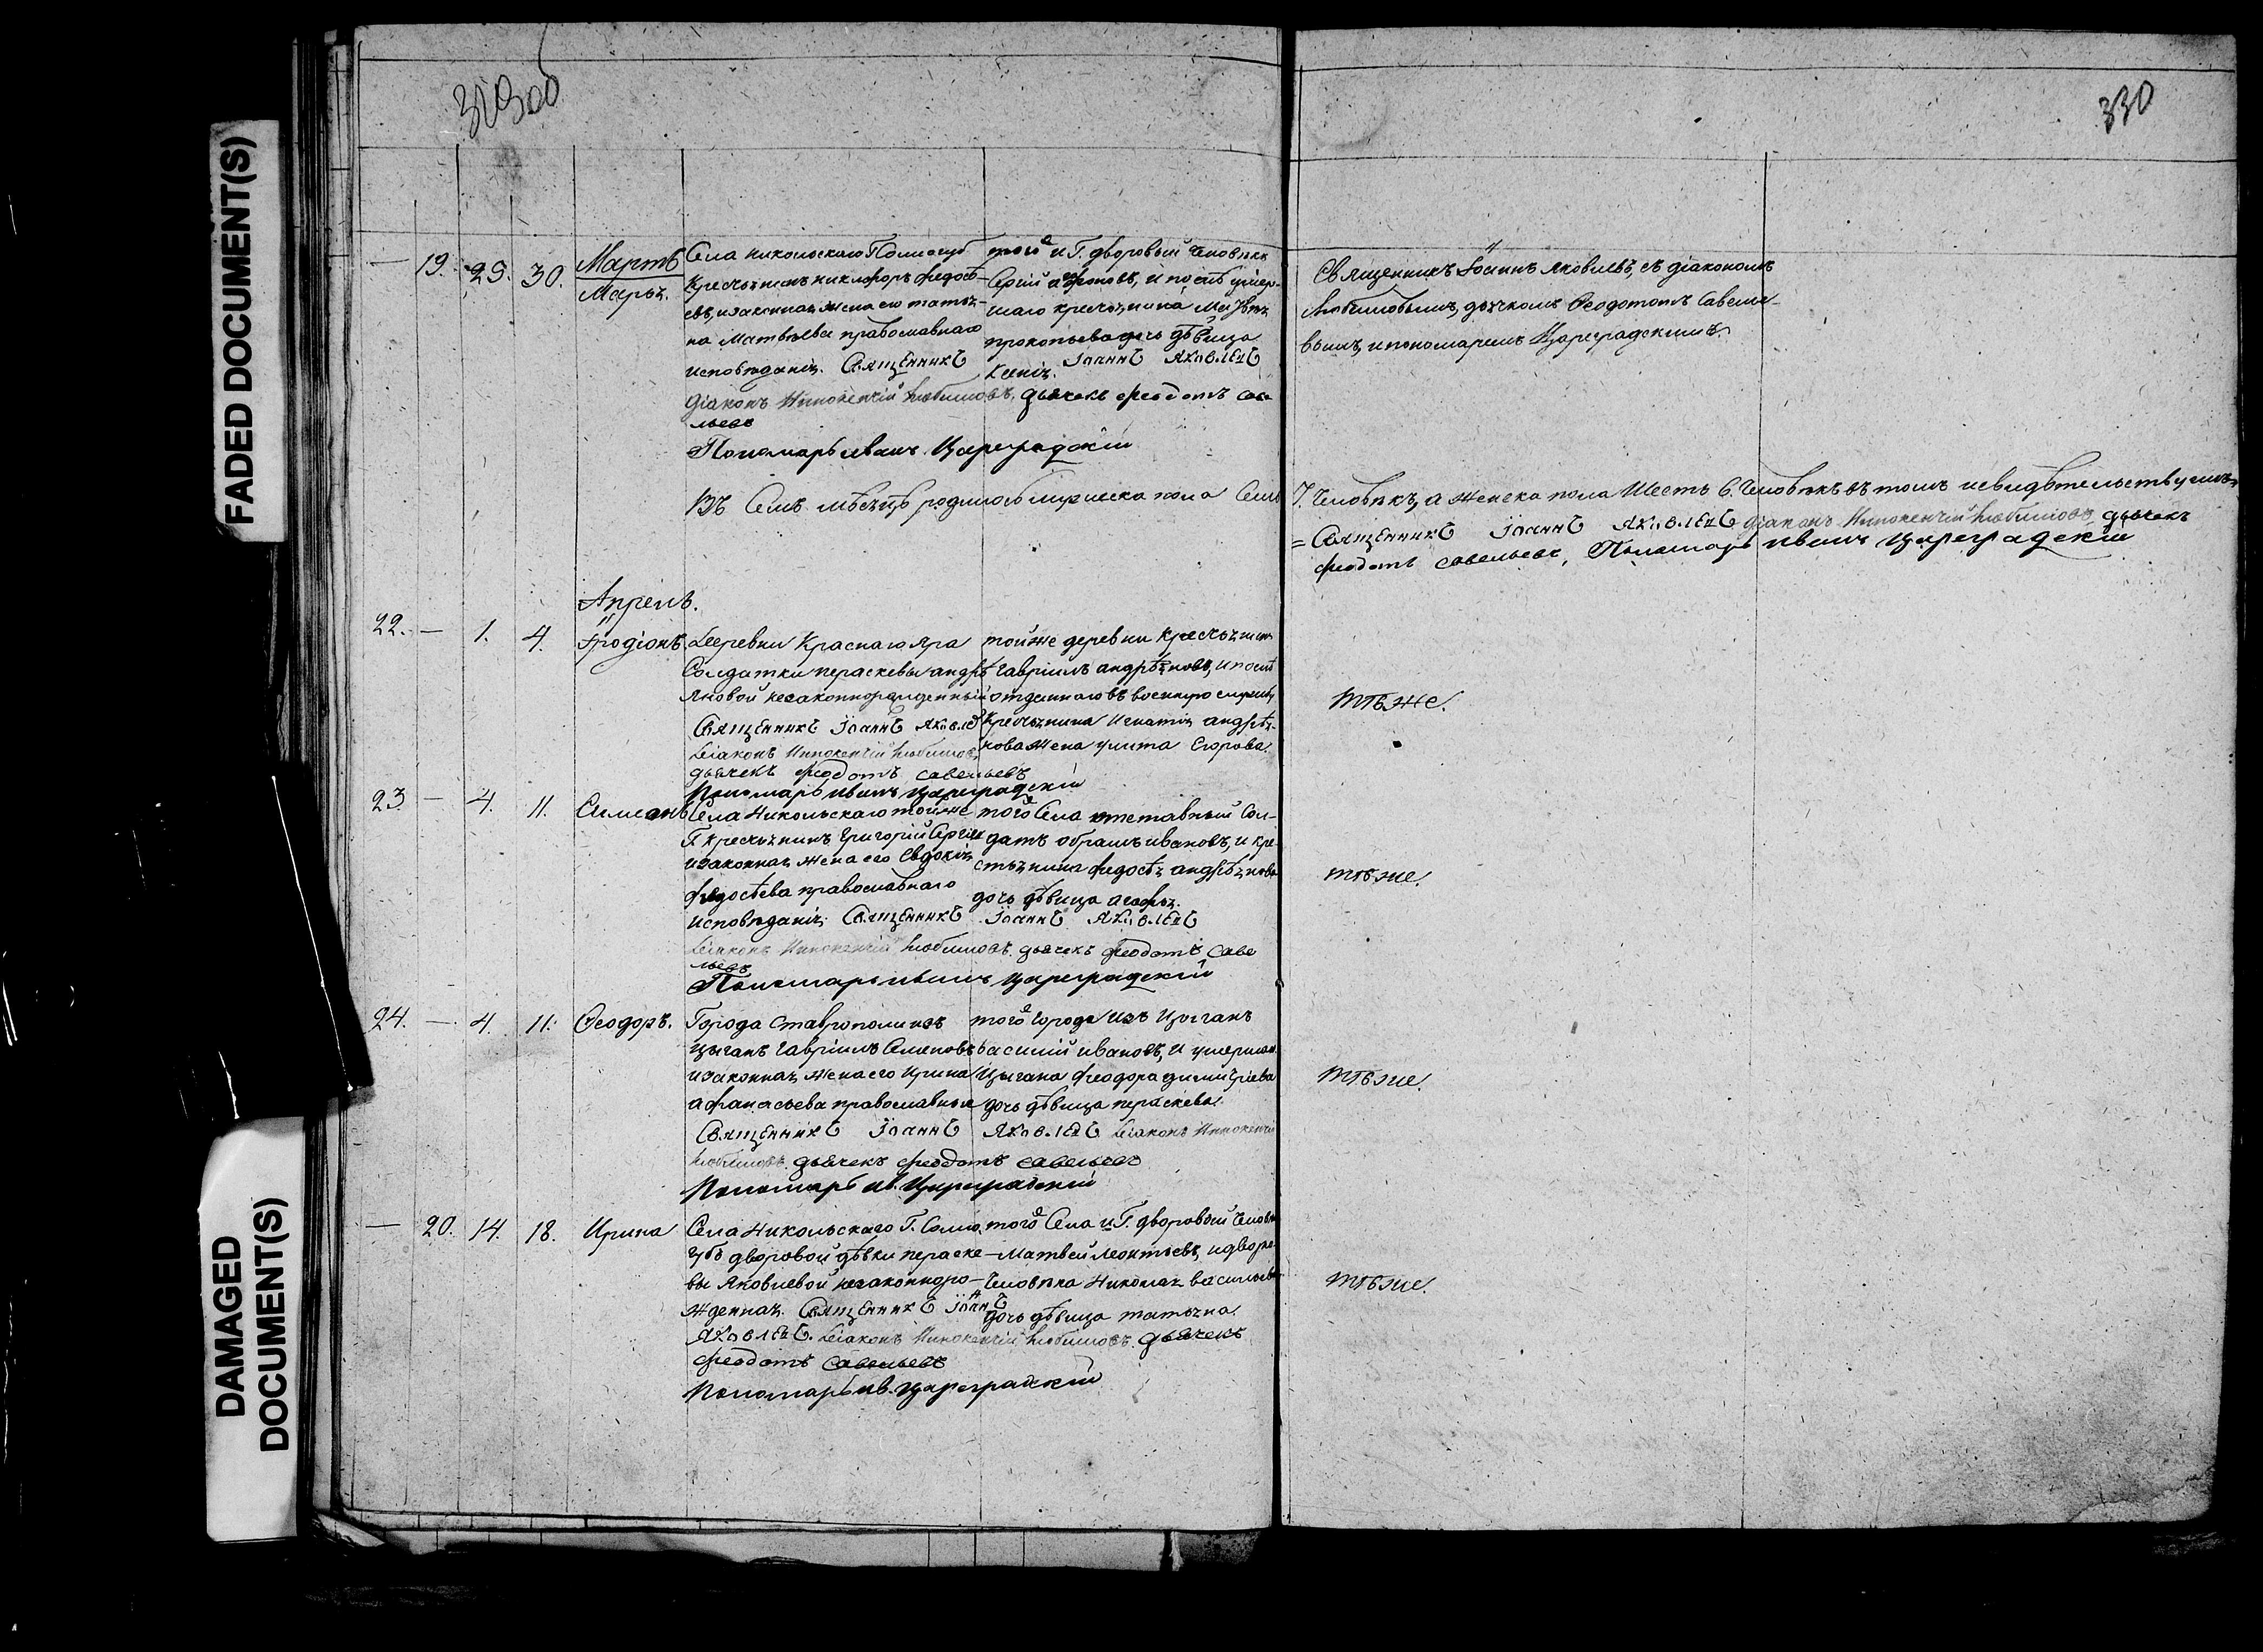 FADED DOCUMENT(S)
DAMAGED
DOCUMENT(S)
330
Мартъ
— 19. 29. 30. Марья.
Села Никольскаго
крестьянинъ никифоръ федосѣ-
евъ, изаконная жена его татья-
на Матвѣева православнаго
исповѣданія. Священникъ Іоаннъ Яковлевъ
Діаконъ Инокентій Любимовъ. дьячекъ Феодотъ Саве
льевъ
Пономарь иванъ Цареградскій
того и Г. дворовый человѣкъ
Сергій и послѣ умер-
шаго крестьянина
прокопьева дочь дѣвица
Ксенія.
Священникъ Іоаннъ Яковлевъ, съ діакономъ
Любимовымъ, дьячкомъ Ѳеодотомъ Савелье-
вымъ, ипономаремъ Цареградскимъ.
Въ Семъ мѣсяцѣ родилось мужеска пола Семь 7. Человѣкъ, а женска пола Шесть 6. Человѣкъ въ томъ исвидѣтельствуемъ
= Священникъ Іоаннъ Яковлевъ діаконъ Инокентій Любимовъ дьячекъ
феодотъ савельевъ, Пономарь иванъ Цареградскій
Апрель.
22. — 1. 4. Іродіонъ.
Деревни Краснаго яра
Солдатки пераскевы андрѣ
яновой незаконнорожденный
Священникъ Іоаннъ Яковлевъ
Діаконъ Инокентій Любимовъ
дьячекъ феодотъ савельевъ
Пономарь иванъ цареградскій
тойже деревни крестьянинъ
Гавріилъ андрѣяновъ, ипослѣ
отданнаго въ военную службу
крестьянина Игнатія андрѣя-
нова жена улита Егорова.
Тѣже.
23 — 4. 11. Симеонъ
Села Никольскаго тойже
Г. крестьянинъ Григорій Сергѣевъ
изаконная жена его Евдокія
федосѣева православнаго
исповѣданія. Священникъ Іоаннъ Яковлевъ
Діаконъ Инокентій Любимовъ. дьячекъ феодотъ Саве
льевъ
Пономарь иванъ цареградскій
того Села отставный Сол-
датъ абрамъ ивановъ, и кре-
стьянина федосѣя андрѣянова
дочь дѣвица агафья.
тѣже.
24. — 4. 11. Ѳеодоръ.
Города Ставрополя изъ
цыганъ Гавріилъ Семеновъ
изаконная жена его Ирина
афанасьева православные
Священникъ Іоаннъ Яковлевъ Діаконъ Инокентій
Любимовъ. дьячекъ феодотъ савельевъ
Пономарь ив. Цареградскій
того города изъ Цыганъ
василій ивановъ, и умершаго
Цыгана феодора димитріева
дочь дѣвица пераскева.
тѣже.
— 20. 14. 18. Ирина
Села Никольскаго Г.
дворовой дѣвки пераске-
вы Яковлевой незаконноро-
жденная. Священникъ Іоаннъ
Яковлевъ. Діаконъ Инокентій Любимовъ. дьячекъ
феодотъ савельевъ
Пономарь ив. цареградскій
того Села и Г. дворовый Человѣкъ
Матвей Леонтьевъ, идворов.
Человѣка Николая васильева
дочь дѣвица татьяна.
тѣже.